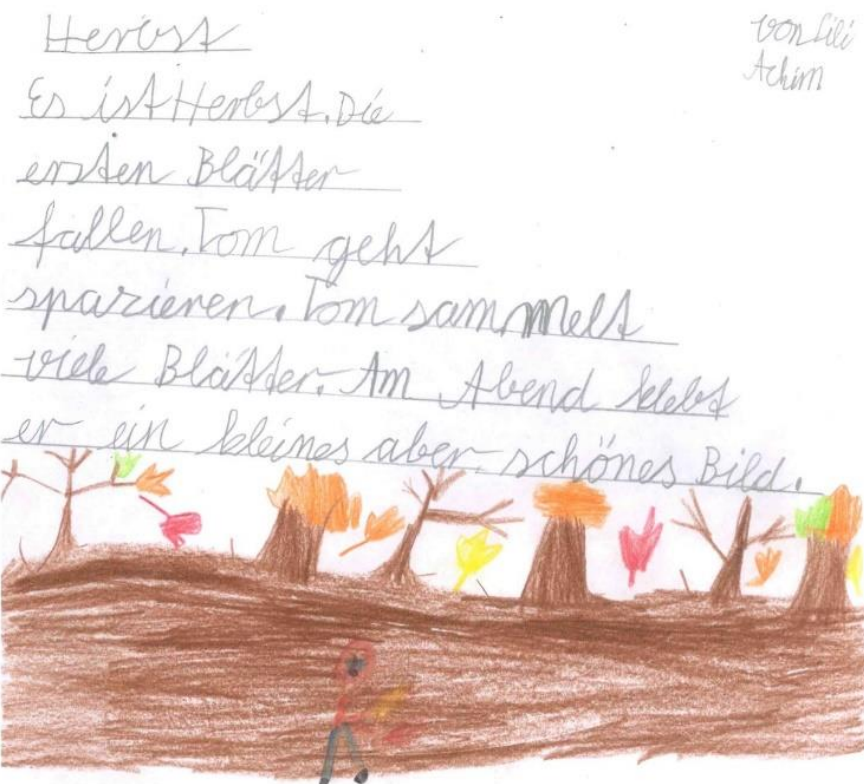 Herbst
von Lili
Achim
Es ist Herbst. Die
ersten Blätter
fallen. Tom geht
spazieren. Tom sammelt
viele Blätter. Am Abend klebt
er ein kleines aber schönes Bild.